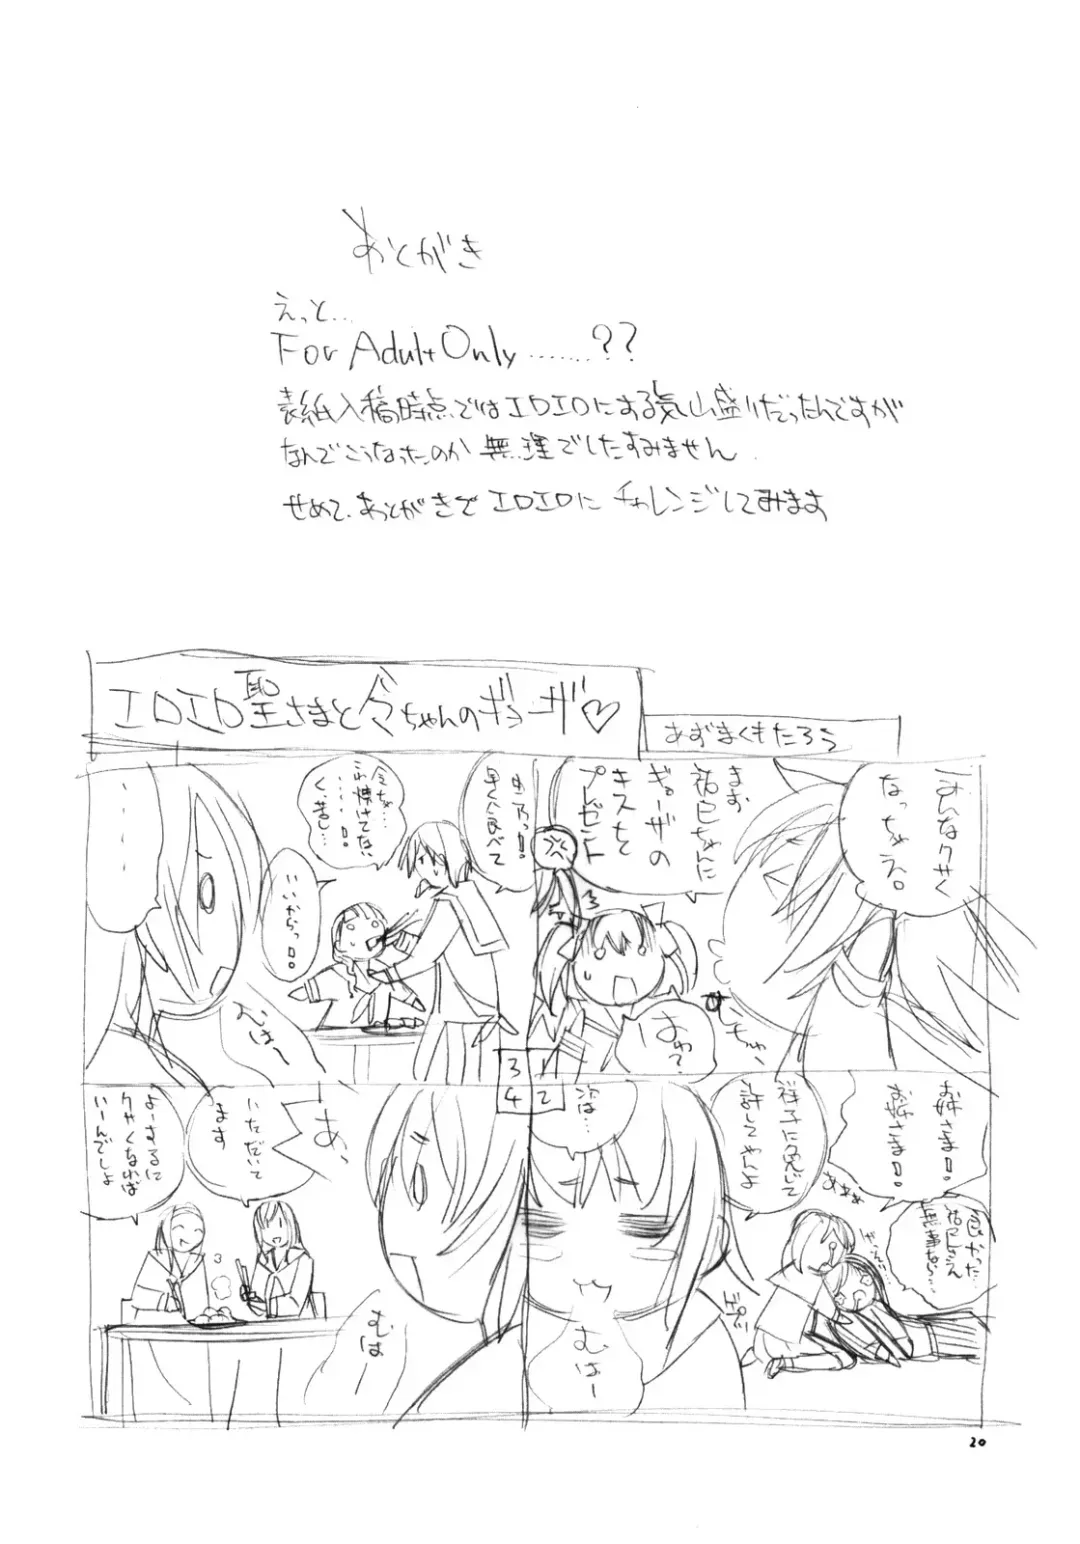 あとがき
えっと…
For Adult Only ……??
表紙入稿時点ではエロエロにする気山盛りだったんですが
なんでこうなったのか無理でしたすみません
せめて、あとがきでエロエロにチャレンジしてみます
エロエロ聖さまと令ちゃんのギョーザ♡
あずまくもたろう
みんなクサく
なっちゃえ。
まず、
祐巳ちゃんに
ギョーザの
キスを
プレゼント
はゎ?
ちゅ、
お姉さま!
お姉さま!
良かった…
祐巳さん
無事ね…
ああぁ
祥子に免じて
許してやんよ
ゲプッ
次は…
むはー
由乃っ!
早く食べて
令ちゃ…
これ焼けてない
……!
く、苦し…
いいからっ!
むはー
……
あ、
むは
いただいて
ます
よーするに
クサくなれば
いーんでしょ
3
1
4
2
20